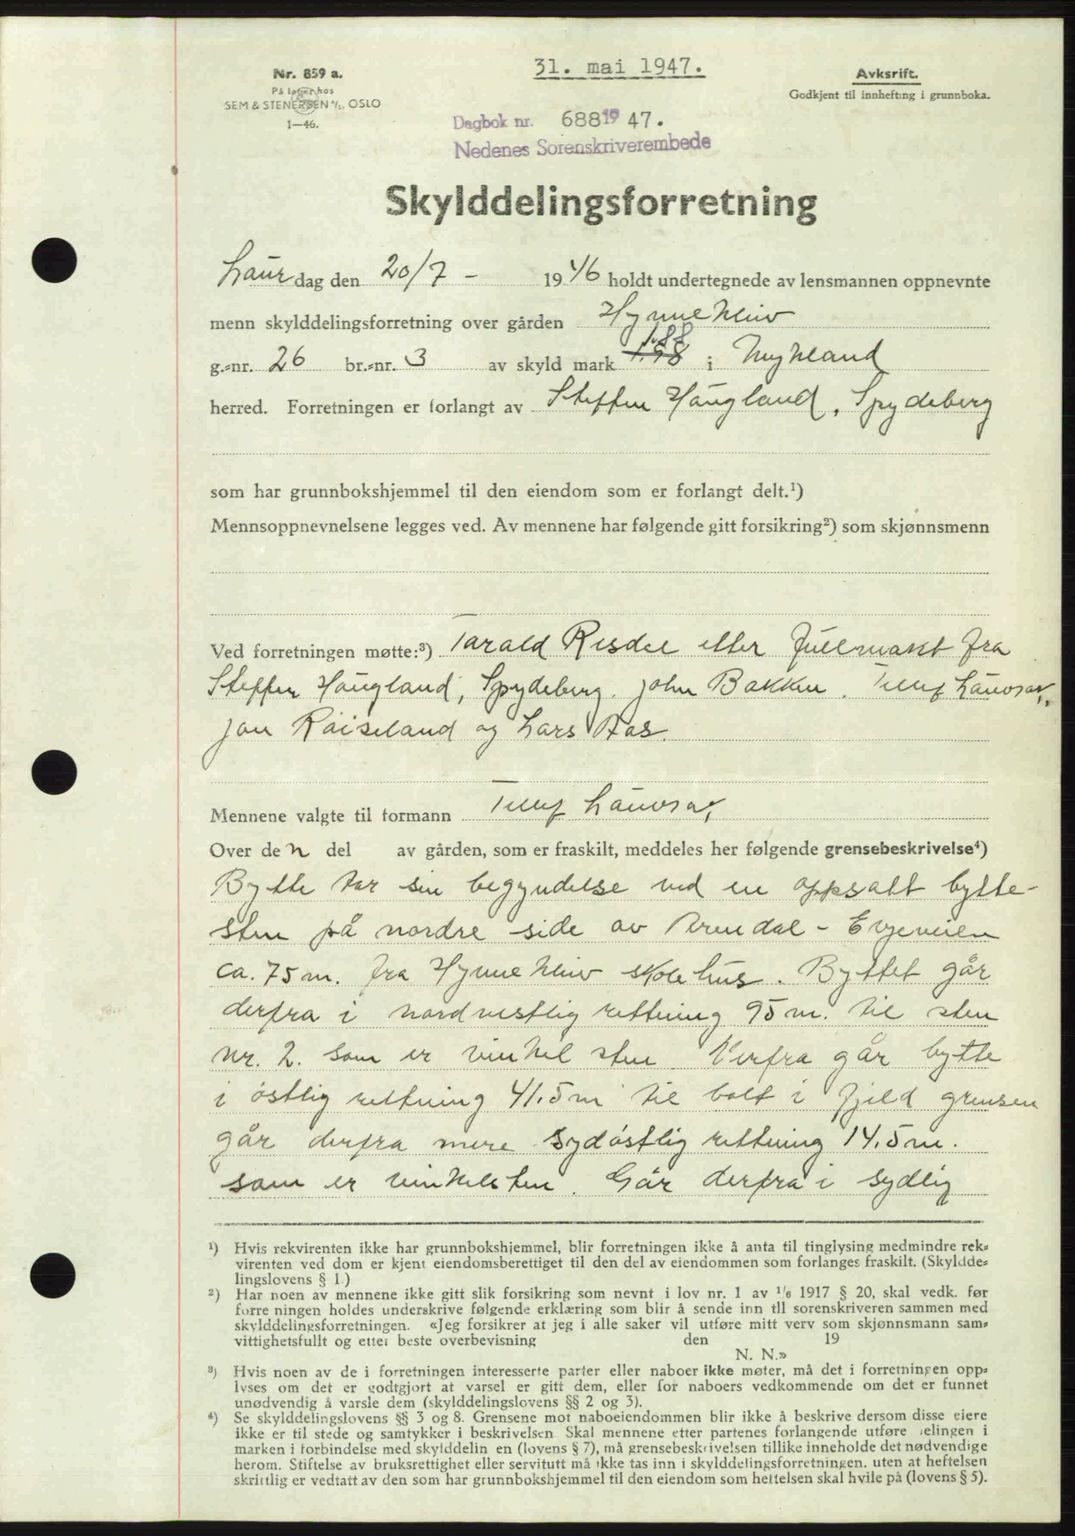 Nr. 859 a.
På lager hos
SEM & STENERSEN A/S, OSLO
1—46.
31. mai 1947.
Avksrift.
Godkjent til innhefting i grunnboka.
Dagbok nr. 688 19 47.
Nedenes Sorenskriverembede
Skylddelingsforretning
Laurdag den 20/7 - 1946 holdt undertegnede av lensmannen oppnevnte
menn skylddelingsforretning over gården Hynnekleiv
1.88
g.=nr. 26 br.=nr. 3 av skyld mark 1.98 i Mykland
herred. Forretningen er forlangt av Steffen Haugland, Spydeberg
som har grunnbokshjemmel til den eiendom som er forlangt delt.¹)
Mennsoppnevnelsene legges ved. Av mennene har følgende gitt forsikring²) som skjønnsmenn
Ved forretningen møtte:³) Tarald Risdal etter fullmakt fra
Steffen Haugland, Spydeberg. John Bakken. Tellef Lauvrak,
Jon Råiseland og Lars Aas.
Mennene valgte til formann Tellef Lauvrak,
Over den del av gården, som er fraskilt, meddeles her følgende grensebeskrivelse⁴)
Bytte tar sin begyndelse ved en oppsatt bytte-
sten på nordre side av Arendal - Evjeveien
ca. 75 m. fra Hynnekleiv skolehus. Byttet går
derfra i nordvestlig rettning 95 m. til sten
nr. 2. som er vinkel sten Derfra går bytte
i østlig rettning 41.5 m til bolt i fjeld grensen
går derfra mere sydøstlig rettning 14.5 m.
som er vinkelsten. Går derfra i sydlig
¹) Hvis rekvirenten ikke har grunnbokshjemmel, blir forretningen ikke å anta til tinglysing medmindre rek=
virenten ved dom er kjent eiendomsberettiget til den del av eiendommen som forlanges fraskilt. (Skyldde=
lingslovens § 1.)
²) Har noen av mennene ikke gitt slik forsikring som nevnt i lov nr. 1 av 1/6 1917 § 20, skal vedk. før
forre ningen holdes underskrive følgende erklæring som blir å sende inn til sorenskriveren sammen med
skylddelingsforretningen. «Jeg forsikrer at jeg i alle saker vil utføre mitt verv som skjønnsmann sam=
vittighetsfullt og etter beste overbevisning den 19
N. N.»
³) Hvis noen av de i forretningen interesserte parter eller naboer ikke møter, må det i forretningen opp=
lyses om det er godtgjort at varsel er gitt dem, eller for naboers vedkommende om det er funnet
unødvendig å varsle dem (skylddelingslovens §§ 2 og 3).
⁴) Se skylddelingslovens §§ 3 og 8. Grensene mot naboeiendommen blir ikke å beskrive dersom disse eiere
ikke er til stede og samtykker i beskrivelsen Skal mennene etter partenes forlangende utføre delingen i
marken i forbindelse med skylddelin en (lovens § 7), må grensebeskrivelsen tillike inneholde det nødvendige
herom. Stiftelse av bruksrettighet eller servitutt må ikke tas inn i skylddelingsforretningen. uten at heftelsen
skriftlig er vedtatt av den som har grunnbokshjemmel til den eiendom som heftelsen skal hvile på (lovens § 5).